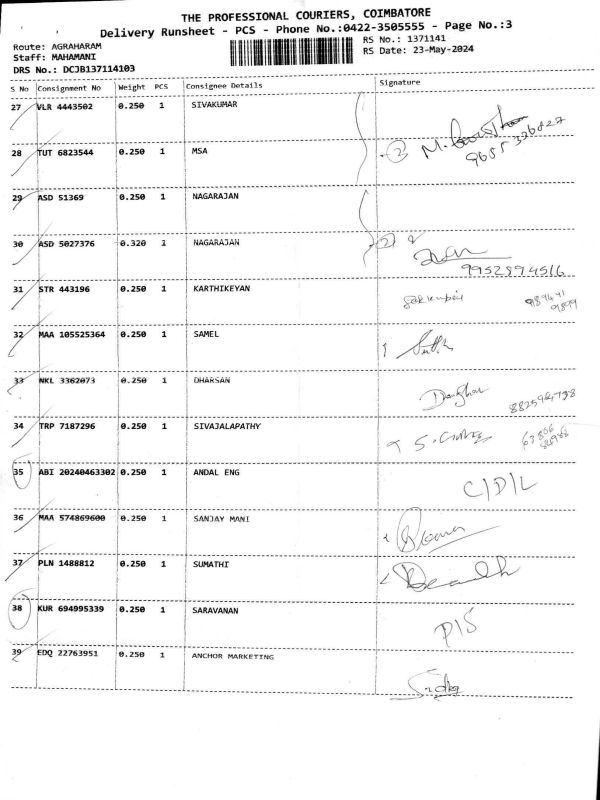 THE PROFESSIONAL COURIERS, COIMBATORE
Delivery Runsheet - PCS - Phone No.:0422-3505555 - Page No.:3
Route: AGRAHARAM
Staff: MAHAMANI
DRS No.: DCJB137114103
RS No.: 1371141
RS Date: 23-May-2024
S No Consignment No Weight PCS Consignee Details Signature
27 VLR 4443502 0.250 1 SIVAKUMAR
28 TUT 6823544 0.250 1 MSA (2) M.
9655 326827
29 ASD 51369 0.250 1 NAGARAJAN
30 ASD 5027376 0.320 1 NAGARAJAN (2)
9952894516
31 STR 443196 0.250 1 KARTHIKEYAN
32 MAA 105525364 0.250 1 SAMEL
33 NKL 3362073 0.250 1 DHARSAN
34 TRP 7187296 0.250 1 SIVAJALAPATHY
35 ABI 20240463302 0.250 1 ANDAL ENG C/D/L
36 MAA 574869600 0.250 1 SANJAY MANI
37 PLN 1488812 0.250 1 SUMATHI
38 KUR 694995339 0.250 1 SARAVANAN P/S
39 EDQ 22763951 0.250 1 ANCHOR MARKETING